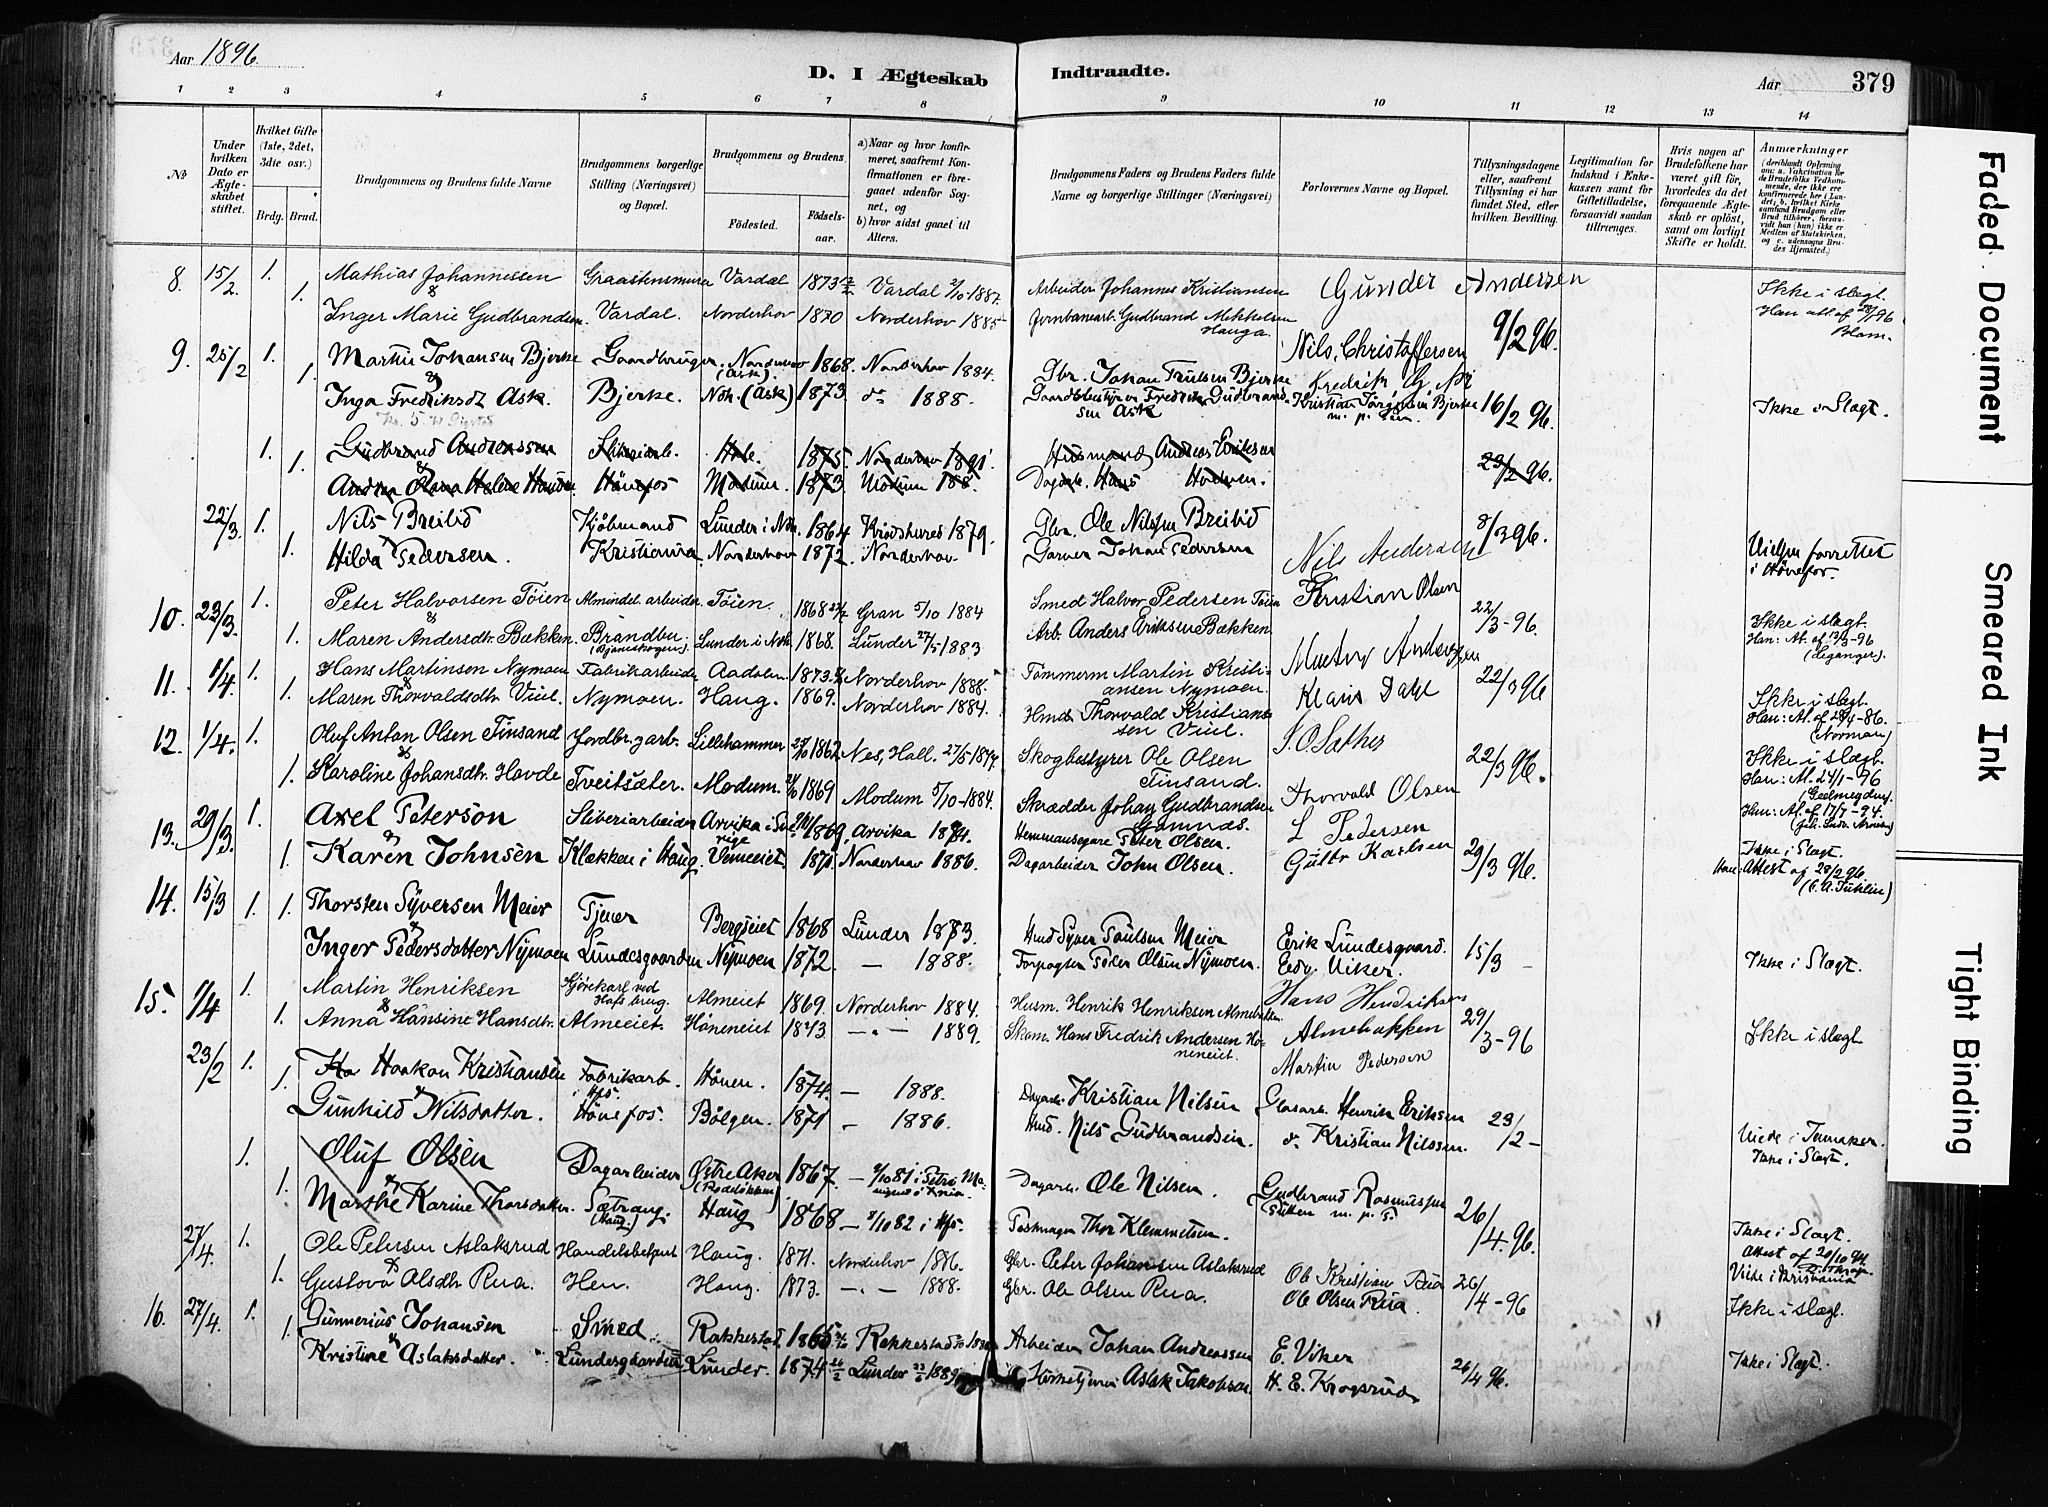 Aar 1896.
D. I Ægteskab Indtraadte.
Aar 379
1 2 3 4 5 6 7 8 9 10 11 12 13 14
No
Under hvilken Dato er Ægteskabet stiftet.
Hvilket Gifte (1ste, 2det, 3die osv.)
Brdg. Brud.
Brudgommens og Brudens fulde Navne
Brudgommens borgerlige Stilling (Næringsvei) og Bopæl.
Brudgommens og Brudens
Fødested. Fødselsaar.
a) Naar og hvor konfirmeret, saafremt Konfirmationen er foregaaet udenfor Sognet, og
b) hvor sidst gaaet til Alters.
Brudgommens Faders og Brudens Faders fulde Navne og borgerlige Stillinger (Næringsvei)
Forlovernes Navne og Bopæl.
Tillysningsdagene eller, saafremt Tillysning ei har fundet Sted, efter hvilken Bevilling.
Legitimation for Indskud i Enkekassen samt for Giftetilladelse, forsaavidt saadan tiltrænges.
Hvis nogen af Brudefolkene har været gift før, hvorledes da det foregaaende Ægteskab er opløst, samt om lovligt Skifte er holdt.
Anmærkninger
8. 15/2. 1. Mathias Johannessen Graastensmurer Vardal 1873 Vardal 2/10-1887. Arbeider Johannes Kristiansen Gunder Andersen Ikke i slegt.
& 1. Inger Marie Gudbrandsen. Vardal. Norderhov 1870 Norderhov 1885 Jernbanearb. Gudbrand Mikkelsen Hauga. Nils Christoffersen 9/2 96.
9. 25/2 1. Martin Johansen Bjerke Gaardbruger. Norderhov (Ask). 1868. Norderhov 1884. Gbr. Johan Trulsen Bjerke Fredrik G.
& 1. Inga Fredriksdt. Ask. Bjerke. Ndh. (Ask) 1873 do 1888. Gaardbestyrer Fredrik Gudbrandsen Ask Kristian Jørgensen Bjerke m. p. Pen. 16/2 96. Ikke i Slægt.
1. Gudbrand Andreassen Sliberiarb. Hole. 1875. Norderhov 1891 Husmand Andreas Eriksen
1. Andrea Olava Helene Hansen Hønefos Modum. 1873. Modum 188 Dagarb. Hans 23/2 96.
22/3. 1. Nils Breilid Kjøbmand Lunder i Ndh. 1864 Krødshered 1879. Gbr. Ole Nilsen Breilid 8/3 96.
& 1. Hilda Pedersen. Kristiania Norderhov 1872. Norderhov. Garver Johan Pedersen Nils Andersen Vielsen forrettet i Hønefos.
10. 23/3. 1. Peter Halvorsen Tøien Almindel. arbeider Tøien. 1868 Gran 5/10 1884 Smed Halvor Pedersen Tøien Kristian Olsen 22/3-96. Ikke i slegt.
& 1. Maren Andersdtr. Bækken. Brandbu (Bjoneskogen) Lunder i Ndh. 1868. Lunder 27/5 1883 Arb. Anders Eriksen Bækken Martin Andersen Han: At. af 13/3-96
11. 1/4. 1. Hans Martinsen Nymoen Fabrikarbeider Aadalen 1873. Norderhov 1888. Tømmerm Martin Kristiansen Nymoen. 22/3 96
& 1. Maren Thorvaldsdtr. Viul. Nymoen. Haug. 1869. Norderhov 1884. Hmd. Thorvald Kristiansen Viul. Klaus Dahl Ikke i slegt.
12. 1/4. 1. Oluf Anton Olsen Finsand Jordbr. garb. Lillehammer 1862. Nes, Hall. 27/5 1877. Skogbestyrer Ole Olsen Finsand. S. O. Sæther 22/3 96. Ikke i slegt.
& 1. Karoline Johansdtr. Hovde Tveitsæter. Modum. 1869 Modum 5/10-1884. Skrædder Johan Gudbrandsen Gomnæs. Thorvald Olsen Han: At. 24/1-96
13. 29/3. 1. Axel Peterson Sliberiarbeider Arvika i Sverige 1869. Arvika 1884. Hemmansegare Peter Olsen. L Pedersen Ikke i Slægt.
& 1. Karen Johnsen Klækken i Haug. Vemeeiet. 1871. Norderhov 1886. Dagarbeider John Olsen. Gustav Karlsen 29/3 96. Attest af 28/2 96
14. 15/3 1. 1. Thorsten Syversen Meier Tjener Bergseiet 1868 Lunder 1883. Hmd Syver Paulsen Meier Erik Lundesgaard. 15/3 -
& Inger Pedersdatter Nymoen Lundesgaarden Nymoen 1872. — 1888. Forpagter Peder Olsen Nymoen. Edv. Viker. Ikke i Slægt.
15. 1/4 1. Martin Henriksen Gjørekarl ved Hofs brug. Almeiet 1869. Norderhov 1884. Husm. Henrik Henriksen Almebakken Hans Hendriksen
& 1. Anna Hansine Hansdtr. Almeeiet. Høneneiet 1873 —„— 1889. Skom. Hans Fredrik Andersen Høneneiet. Almebakken 29/3-96 Ikke i slegt.
Martin Pedersen
23/2 1. Haakon Kristiansen Fabrikarb. i Hfs. Hønen. 1874. — 1888. Dagarb. Kristian Nilsen Glasarb. Henrik Eriksen
& 1. Gunhild Nilsdatter. Hønefos Bølgen. 1871 — 1886. Hmd. Nils Gudbrandsen. do. Kristian Nilssen. 23/2 -
Ikke i Slægt.
1. Oluf Olsen Dagarbeider Østre Aker (Rodeløkken) 1867. Dagarb. Ole Nilsen. Gudbrand Rasmussen
& 1. Marthe Karine Thorsdatter. Sætrang. (Haug) Haug 1868 — 8/10 82 i Hfs. Postmager Thor Klemmetsen. m. p. P. 26/4. 96. Ikke i Slægt.
27/4. 1. Ole Petersen Aslaksrud Handelsbetjent Haug. 1871. Norderhov 1886. Gbr. Peter Johansen Aslaksrud Attest af 20/10 94.
& 1. Gustova Olsdtr. Rua. Hen. Haug. 1873. —„— 1888. Gbr. Ole Olsen Rua. Ole Kristian Rua Ole Olsen Rua. 26/4-96 Viede i Kristiania Ikke i slegt.
16. 27/4. 1. Gunnerius Johansen Smed Rakkestad. 1865 Rakkestad Arbeider Johan Andreassen E. Viker
& 1. Kristine Aslaksdatter. Lundesgaarden Lunder. 1874 Lunder 1889 Kirketjener Aslak Jakobsen H. E. Krogsrud 26/4 96. Ikke i Slægt.
Faded Document
Smeared Ink
Tight Binding